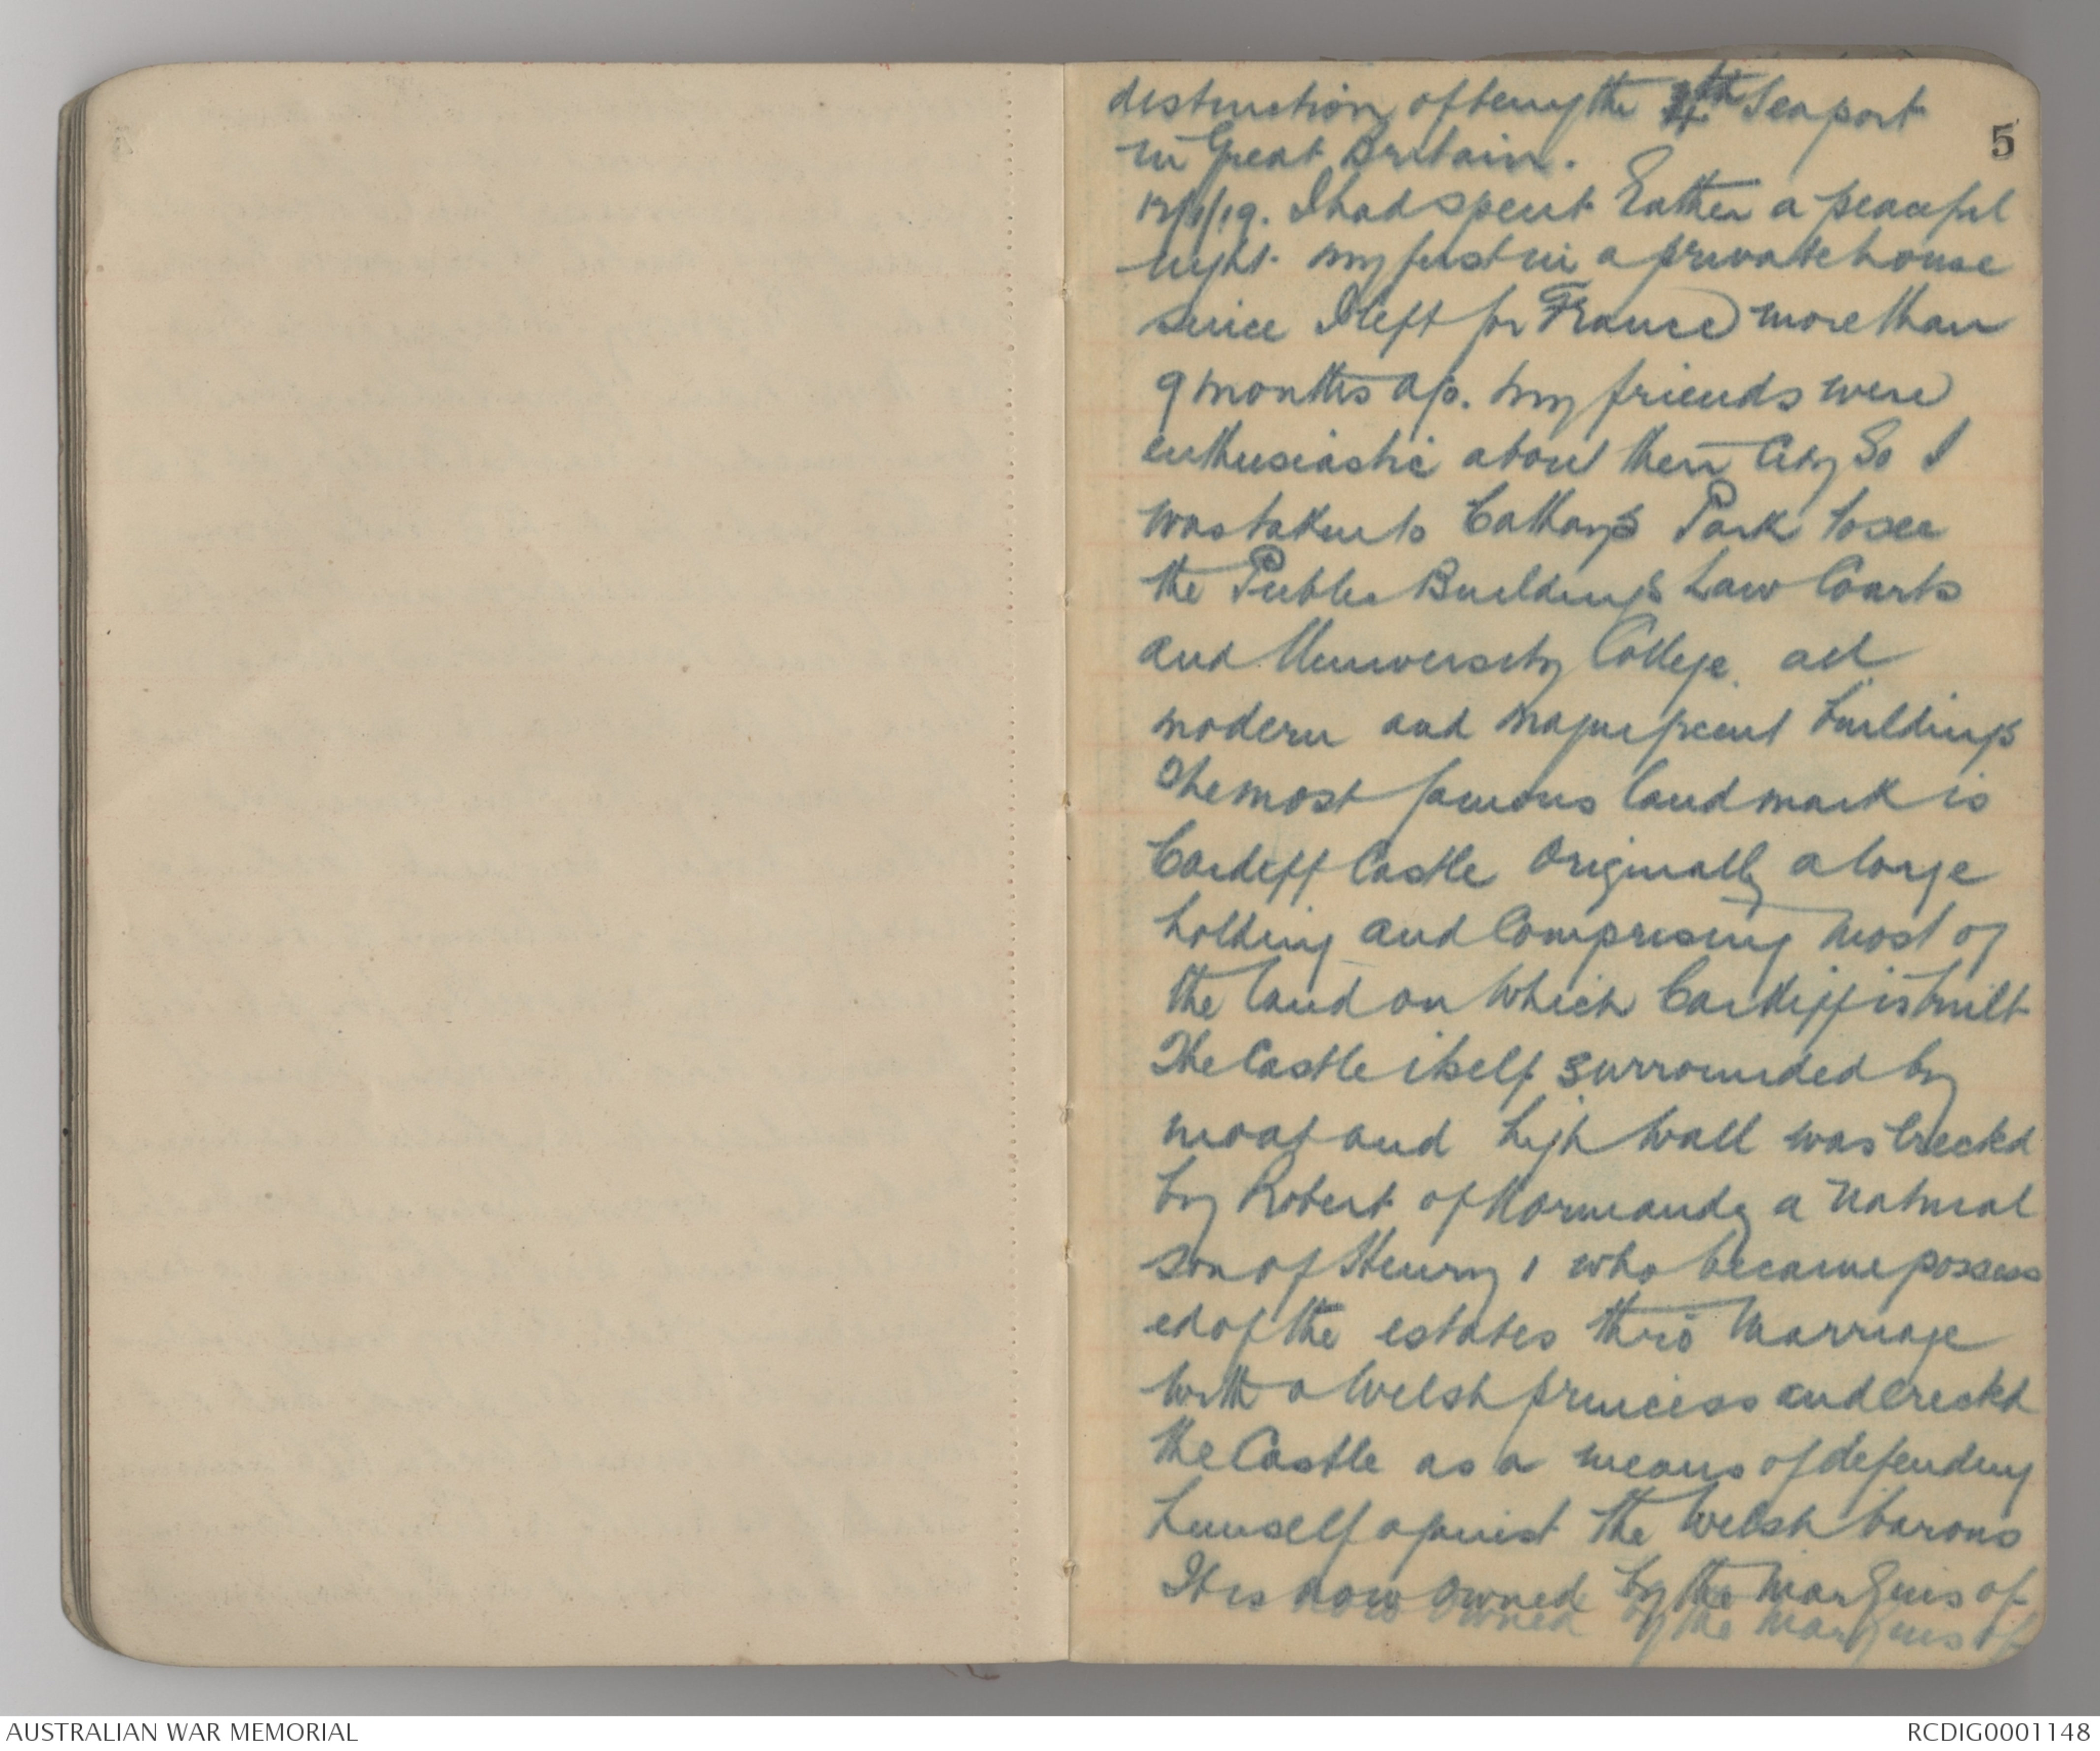 distinction of being the 4th Seaport
5
in Great Britain.
12/1/19. I had spent Rather a peaceful
night. my first in a private house
since I left for France more than
9 months ago. my friends were
enthusiastic about their City So I
was taken to Cathays Park to see
the Public Buildings Law Courts
and University College. all
modern and magnificent buildings
The most famous landmark is
Cardiff Castle Originally a large
holding and Comprising most of
the land on which Cardiff is built
The Castle itself surrounded by
moat and high wall was Erected
by Robert of Normandy a natural
son of Henry 1 who became possess
ed of the estates thro' Marriage
with a Welsh princess and Erected
the Castle as a means of defending
himself against the Welsh barons
It is now owned by the Marquis of
AUSTRALIAN WAR MEMORIAL
RCDIG0001148